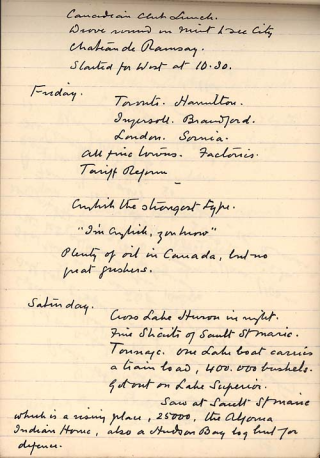 Canadian Club Lunch.
Drove round in mist to see City
Chateau de Ramsay.
Started for West at 10.30.
Friday.
Toronto. Hamilton.
Ingersoll. Brandford.
London. Sarnia.
All fine towns. Factories.
Tariff Reform
English the strongest type.
"I'm English, you know"
Plenty of oil in Canada, but no
great gushers.
Saturday.
Cross Lake Huron in night.
Fine Straits of Sault St Marie.
Tonnage. One Lake boat carries
a train load, 400.000 bushels.
Get out on Lake Superior.
Saw at Sault St Marie
which is a rising place, 25000, the Algoma
Indian Home, also a Hudson Bay log hut for
defence.